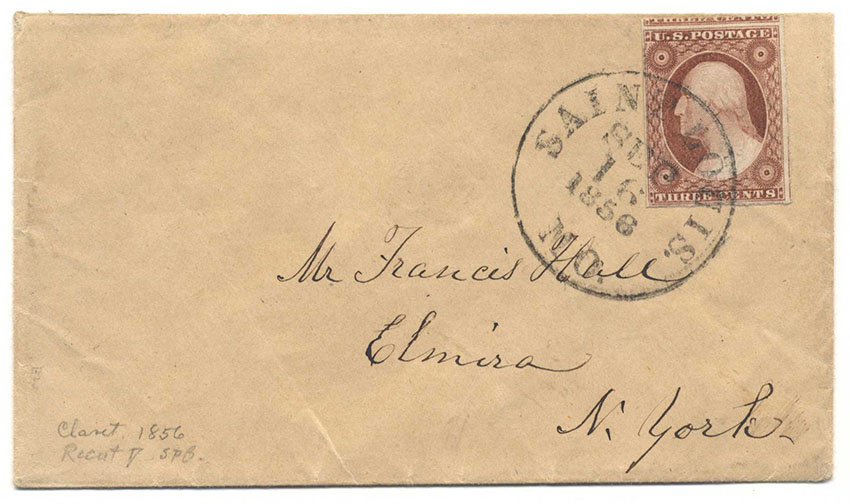 THREE CENTS
U.S. POSTAGE
THREE CENTS
SAINT LOUIS.
16
1856
MO.
Mr Francis Hall
Elmira
N. York
Claret. 1856
Recut